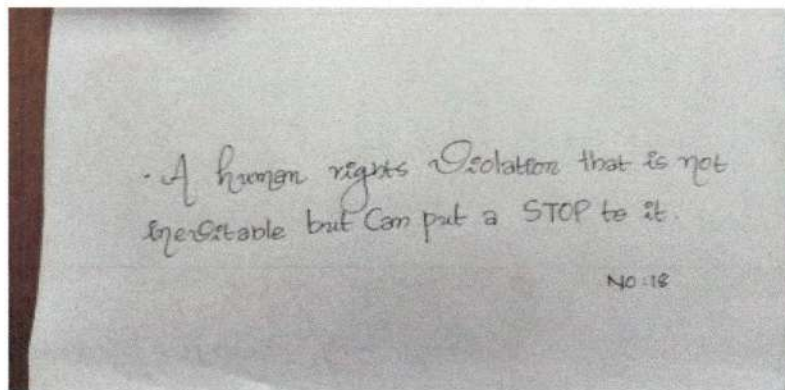 . A human rights Violation that is not
inevitable but Can put a STOP to it.
NO:18